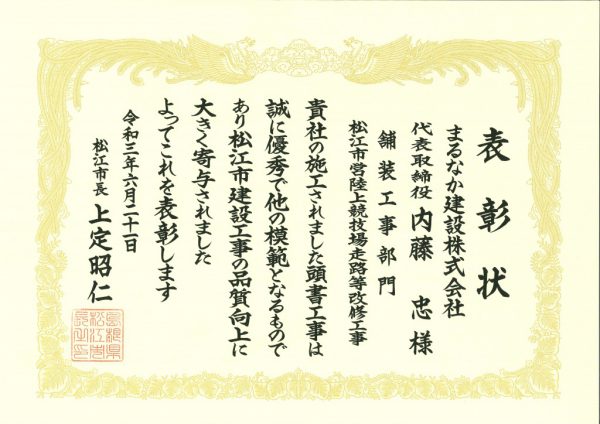 表彰状
まるなか建設株式会社
代表取締役 内藤 忠 様
舗装工事部門
松江市営陸上競技場走路等改修工事
貴社の施工されました頭書工事は
誠に優秀で他の模範となるもので
あり松江市建設工事の品質向上に
大きく寄与されました
よってこれを表彰します
令和三年六月二十一日
松江市長 上定昭仁
島根県
松江市
長之印